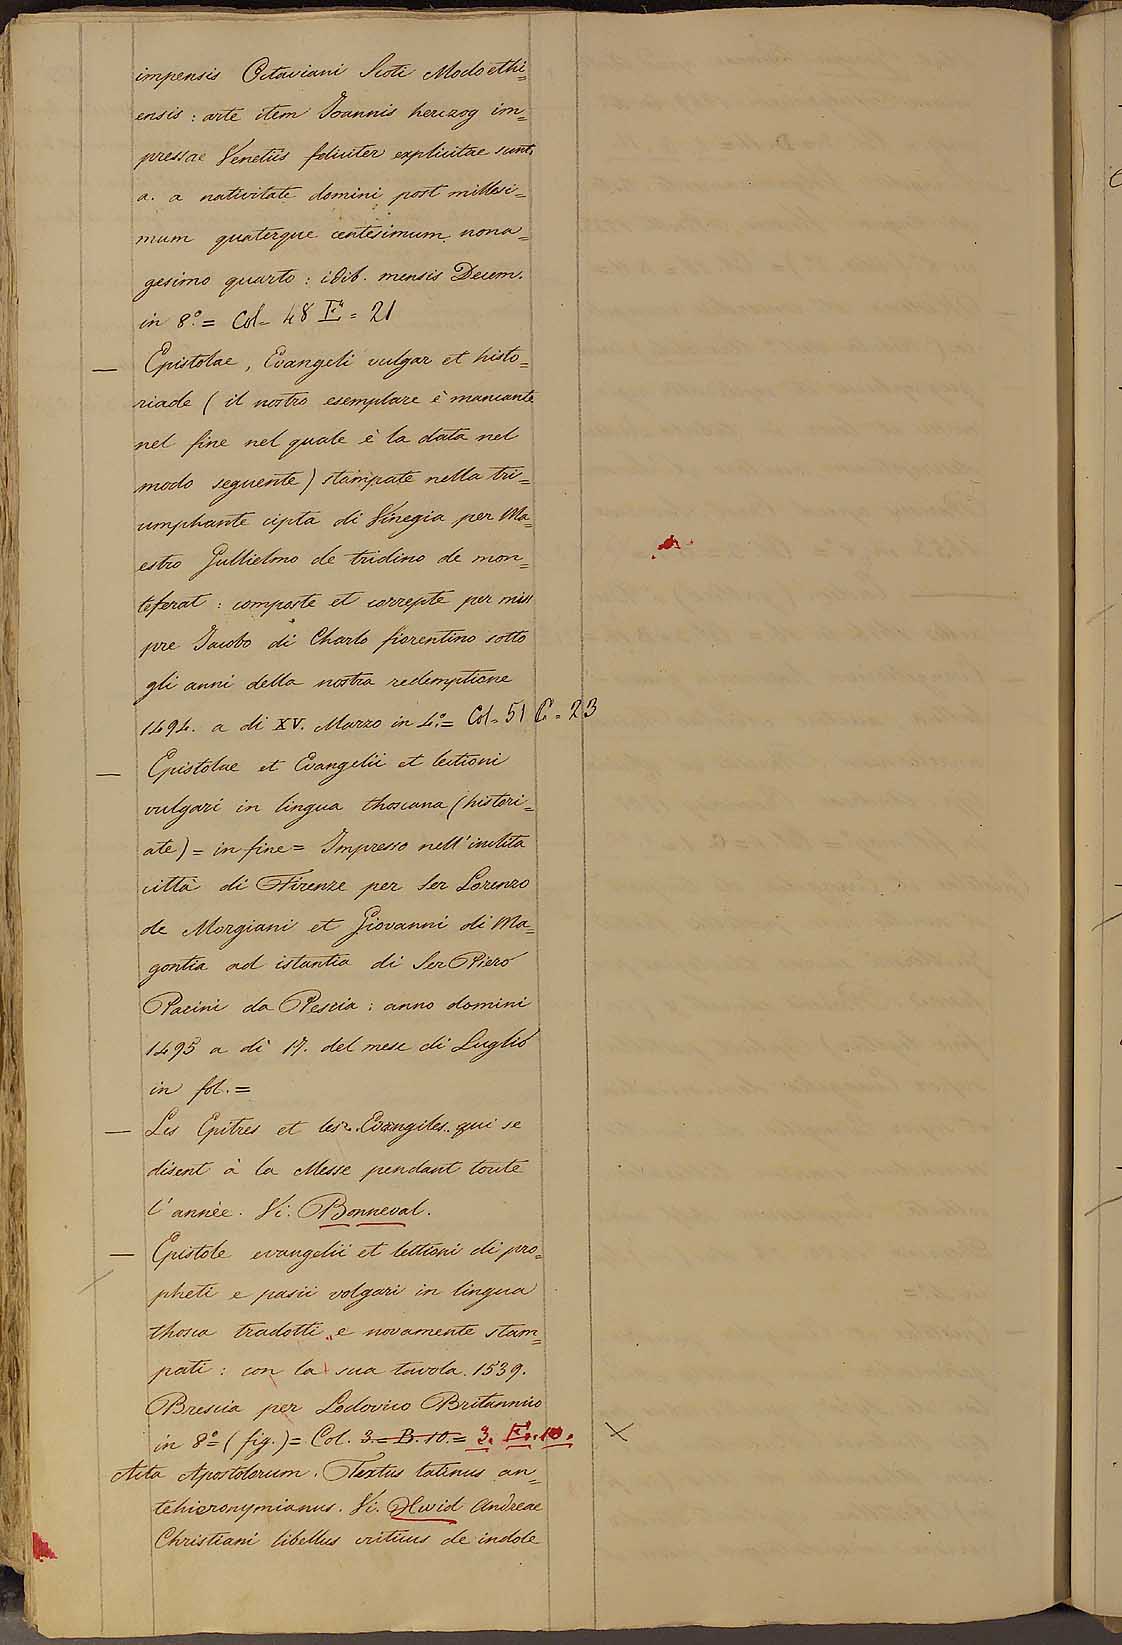 impensis Octaviani Scoti Modoethi=
ensis : arte item Joannis herczog im=
pressae Venetiis feliciter explicitae sunt.
a. a nativitate domini post millesi=
mum quaterque centesimum nona=
gesimo quarto : idib. mensis Decem.
in 8.º = Col= 48 E = 21
— Epistolae, Evangeli vulgar et histo=
riade ( il nostro esemplare è mancante
nel fine nel quale è la data nel
modo seguente ) stampate nella tri=
umphante cipta di Vinegia per Ma=
estro Gullielmo de tridino de mon=
teferat : composte et correpte per miss
pre Jacobo di Charlo fiorentino sotto
gli anni della nostra redemptione
1494. a di XV. Marzo in 4.º= Col= 51 C = 23
— Epistolae et Evangelii et lectioni
vulgari in lingua thoscana (histori=
ate) = in fine = Impresso nell' inclita
città di Firenze per Ser Lorenzo
de Morgiani et Giovanni di Ma=
gontia ad istantia di Ser Piero
Pacini da Pescia : anno domini
1495 a di 17. del mese di Luglio
in fol. =
— Les Epitres et les Evangiles qui se
disent à la Messe pendant toute
l'année. Vi. Bonneval.
— Epistole evangelii et lettioni di pro=
pheti e pasii volgari in lingua
thosca tradotti, e novamente stam=
pati : con la sua tavola. 1539.
Brescia per Lodovico Britannico
in 8º = ( fig. ) = Col. 3. = B. 10. = 3. E. 10. X
Acta Apostolorum. Textus latinus an=
tehieronymianus. Vi. Hwid Andreae
Christiani libellus criticus de indole